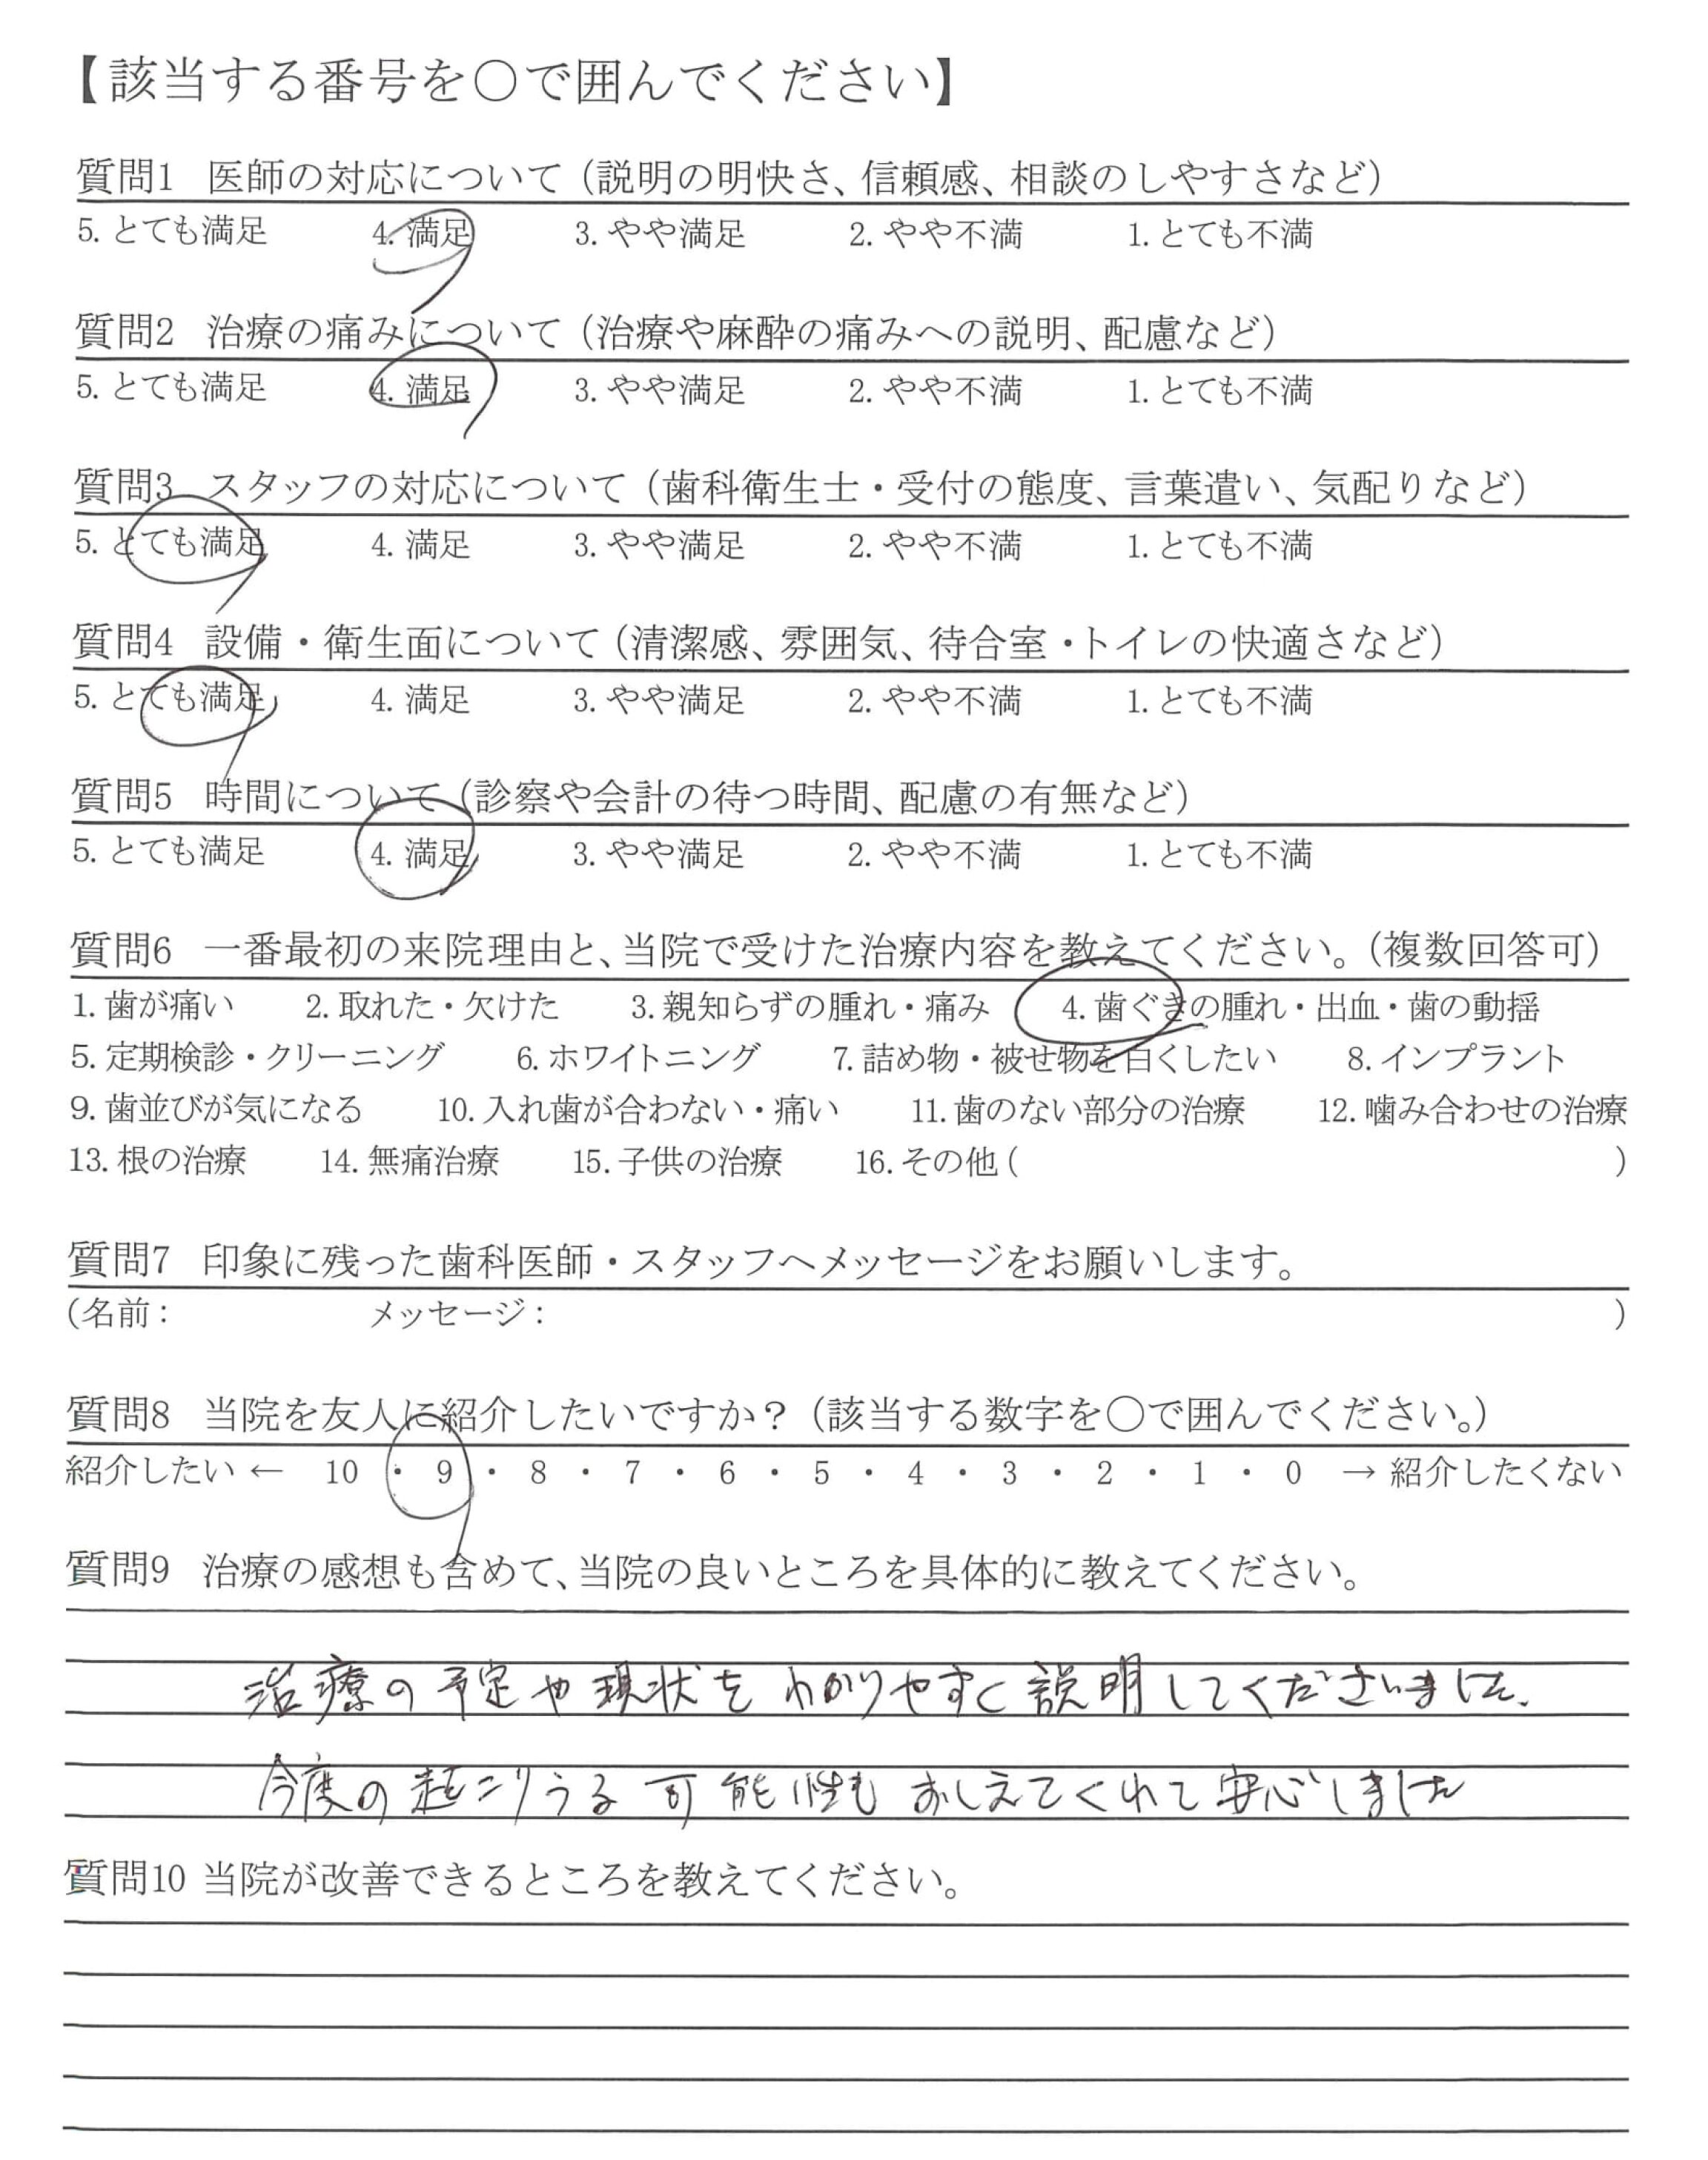 【該当する番号を〇で囲んでください】
質問1 医師の対応について（説明の明快さ、信頼感、相談のしやすさなど）
5. とても満足 4. 満足 3. やや満足 2. やや不満 1. とても不満
質問2 治療の痛みについて（治療や麻酔の痛みへの説明、配慮など）
5. とても満足 4. 満足 3. やや満足 2. やや不満 1. とても不満
質問3 スタッフの対応について（歯科衛生士・受付の態度、言葉遣い、気配りなど）
5. とても満足 4. 満足 3. やや満足 2. やや不満 1. とても不満
質問4 設備・衛生面について（清潔感、雰囲気、待合室・トイレの快適さなど）
5. とても満足 4. 満足 3. やや満足 2. やや不満 1. とても不満
質問5 時間について（診察や会計の待つ時間、配慮の有無など）
5. とても満足 4. 満足 3. やや満足 2. やや不満 1. とても不満
質問6 一番最初の来院理由と、当院で受けた治療内容を教えてください。（複数回答可）
1. 歯が痛い 2. 取れた・欠けた 3. 親知らずの腫れ・痛み 4. 歯ぐきの腫れ・出血・歯の動揺
5. 定期検診・クリーニング 6. ホワイトニング 7. 詰め物・被せ物を白くしたい 8. インプラント
9. 歯並びが気になる 10. 入れ歯が合わない・痛い 11. 歯のない部分の治療 12. 噛み合わせの治療
13. 根の治療 14. 無痛治療 15. 子供の治療 16. その他 ( )
質問7 印象に残った歯科医師・スタッフへメッセージをお願いします。
（名前： メッセージ： ）
質問8 当院を友人に紹介したいですか？（該当する数字を〇で囲んでください。）
紹介したい ← 10 ・ 9 ・ 8 ・ 7 ・ 6 ・ 5 ・ 4 ・ 3 ・ 2 ・ 1 ・ 0 → 紹介したくない
質問9 治療の感想も含めて、当院の良いところを具体的に教えてください。
治療の予定や現状をわかりやすく説明してくださいました。
今度の起こりうる可能性もおしえてくれて安心しました
質問10 当院が改善できるところを教えてください。